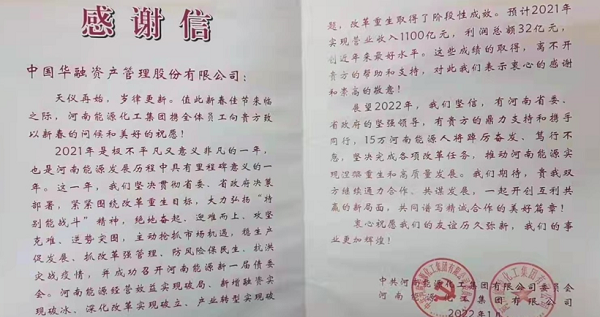 感谢信
中国华融资产管理股份有限公司：
天仪再始，岁律更新。值此新春佳节来临
之际，河南能源化工集团携全体员工向贵方致
以新春的问候和美好的祝愿！
2021年是极不平凡又意义非凡的一年，
也是河南能源发展历程中具有里程碑意义的一
年。这一年，我们坚决贯彻省委、省政府决策
部署，紧紧围绕改革重生目标，大力弘扬“特
别能战斗”精神，绝地奋起、迎难而上、攻坚
克难、逆势突围，主动抢抓市场机遇，稳生产
促发展、抓改革强管理、防风险保民生、抗洪
灾战疫情，并成功召开河南能源新一届债委
会。河南能源经营效益实现破局、新增融资实
现破冰、深化改革实现破立、产业转型实现破
题，改革重生取得了阶段性成效。预计2021年
实现营业收入1100亿元，利润总额32亿元，
创近年来最好水平。这些成绩的取得，离不开
贵方的帮助和支持，对此我们表示衷心的感谢
和崇高的敬意！
展望2022年，我们坚信，有河南省委、
省政府的坚强领导，有贵方的鼎力支持和携手
同行，15万河南能源人将踔厉奋发、笃行不
怠，坚决完成各项改革任务，推动河南能源实
现涅槃重生和高质量发展。我们期待，贵我双
方继续通力合作、共谋发展，一起开创互利共
赢的新局面，共同谱写精诚合作的美好篇章！
衷心祝愿我们的友谊历久弥新，我们的事
业更加辉煌！
中共河南能源化工集团有限公司委员会
河南能源化工集团有限公司
2022年1月